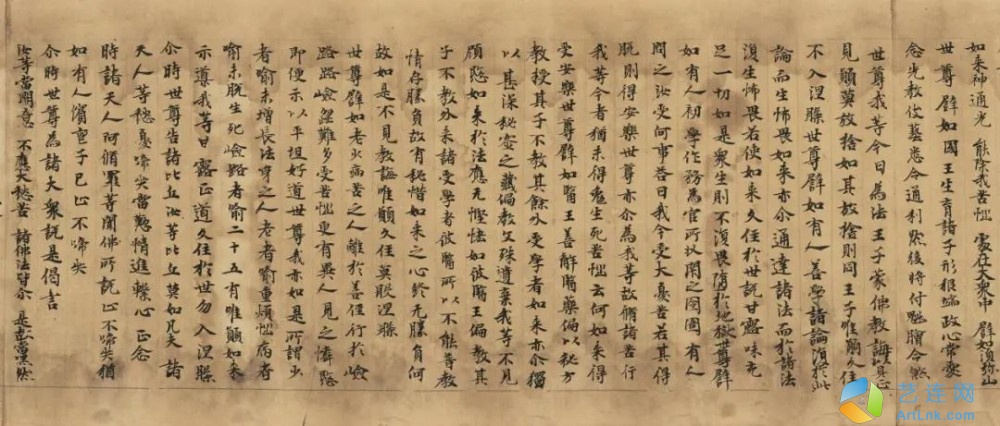 如來神通光 能除我苦惱 處在大衆中 譬如須弥山
世尊譬如國王生育諸子形皃端政心常愛
念先教伎藝悉令通利然後將付魁膾令煞
世尊我等今日為法王子蒙佛教誨以具正
見願莫放捨如其放捨則同王子唯願久住
不入涅槃世尊譬如有人善學諸論復於此
論而生怖畏如來亦尒通達諸法而於諸法
復生怖畏若使如來久住於世說甘露味充
足一切如是衆生則不復畏墮於地獄世尊譬
如有人初學作務為官所收閇之囹圄有人
問之汝受何事荅曰我今受大憂苦若其得
脫則得安樂世尊亦尒為我等故脩諸苦行
我等今者猶未得免生死苦惱云何如來得
受安樂世尊譬如醫王善解醫藥偏以秘方
教授其子不教其餘外受學者如來亦尒獨
以甚深秘密之藏偏教文殊遺棄我等不見
顧愍如來於法應无慳悋如彼醫王偏教其
子不教外來諸受學者彼醫所以不能普教
情存勝負故有秘惜如來之心終无勝負何
故如是不見教誨唯願久住莫般涅槃
世尊譬如老少病苦之人離於善徑行於嶮
路路嶮澀難多受苦惱更有異人見之憐愍
即便示以平坦好道世尊我亦如是所謂少
者喻未增長法身之人老者喻重煩惱病者
喻未脫生死嶮路者喻二十五有唯願如來
示導我等甘露正道久住於世勿入涅槃
尒時世尊告諸比丘汝等比丘莫如凡夫諸
天人等愁憂啼哭當懃精進繫心正念
時諸天人阿脩羅等聞佛所說止不啼哭猶
如有人殯喪子已止不啼哭
尒時世尊為諸大衆說是偈言
汝等當開意 不應大愁苦 諸佛法皆尒 是故當默然
艺连网
ArtLnk.com